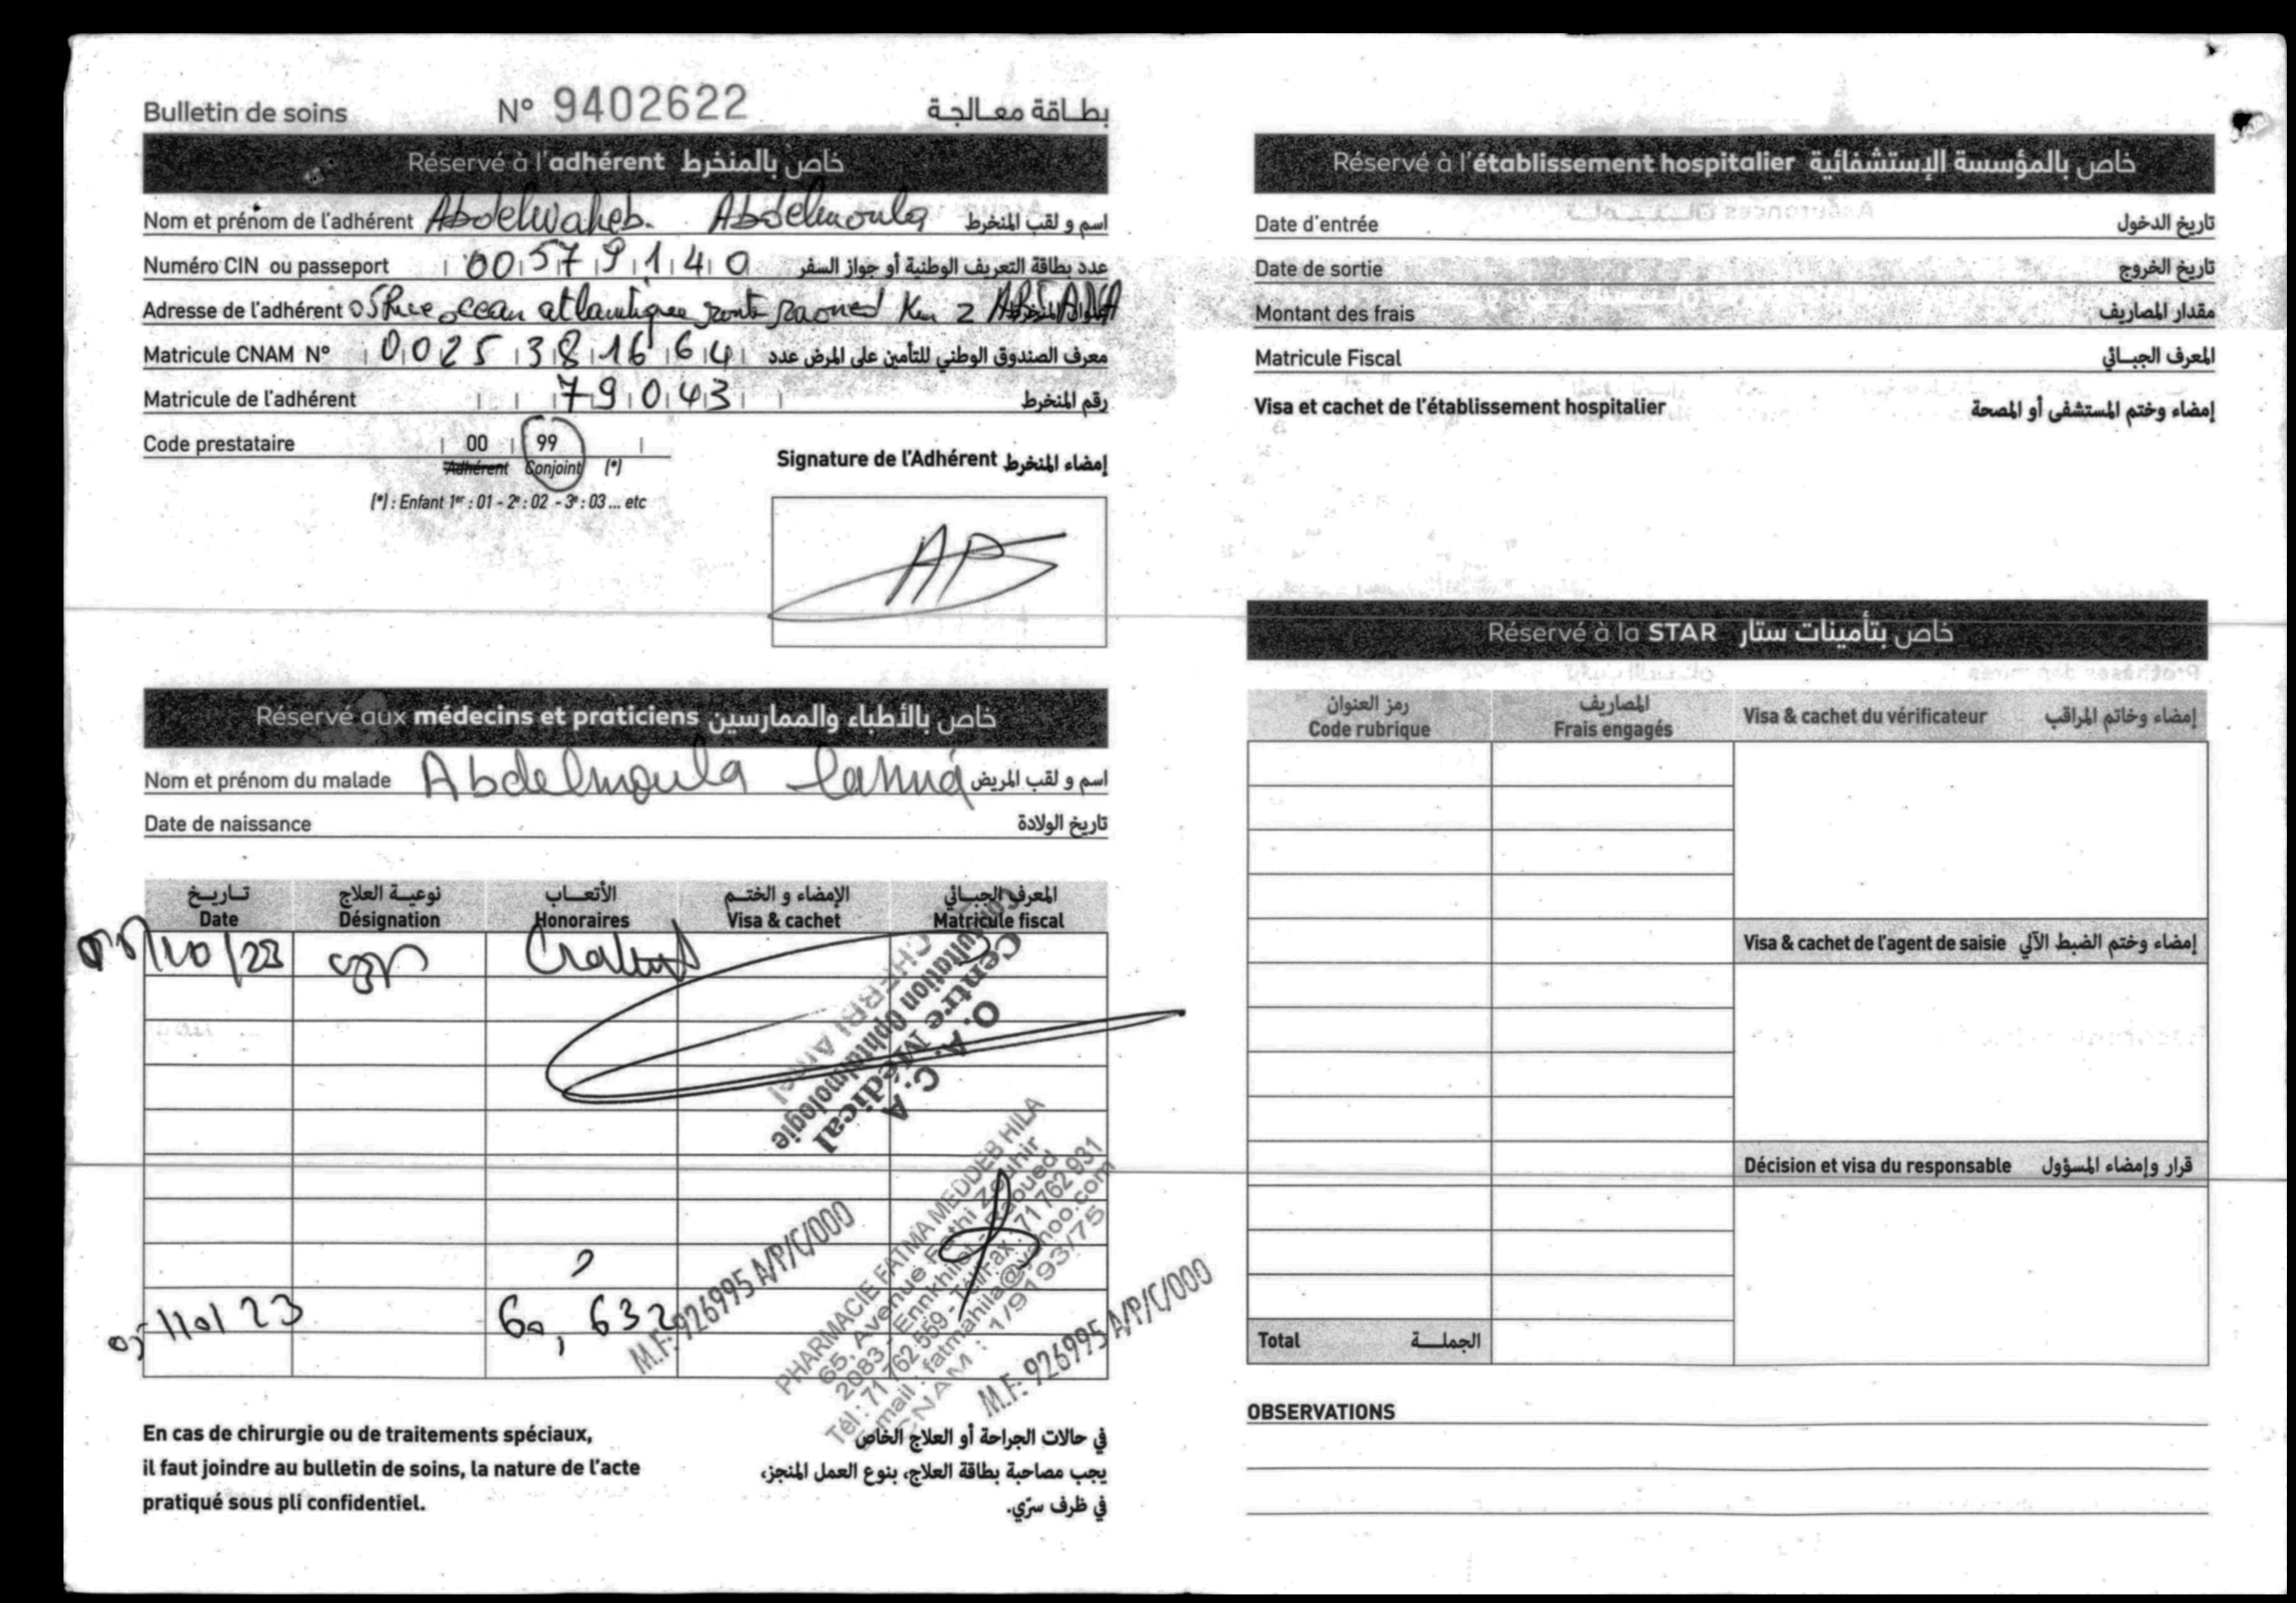 Bulletin de soins N° 9402622 بطاقة معالجة
Réservé à l'adhérent خاص بالمنخرط
Nom et prénom de l'adhérent Abdelwaheb. Abdelmoula اسم و لقب المنخرط
Numéro CIN ou passeport 00579140 عدد بطاقة التعريف الوطنية أو جواز السفر
Adresse de l'adhérent 05 Rue ocean atlantique route raoued Km 2 ARIANA عنوان المنخرط
Matricule CNAM N° 0025381664 معرف الصندوق الوطني للتأمين على المرض عدد
Matricule de l'adhérent 79043 رقم المنخرط
Code prestataire 00 99
Adhérent Conjoint (*)
(*) : Enfant 1er : 01 - 2e : 02 - 3e : 03 ... etc
Signature de l'Adhérent إمضاء المنخرط
Réservé aux médecins et praticiens خاص بالأطباء والممارسين
Nom et prénom du malade Abdelmoula اسم و لقب المريض
Date de naissance تاريخ الولادة
تاريخ نوعية العلاج الأتعاب الإمضاء و الختم المعرف الجبائي
Date Désignation Honoraires Visa & cachet Matricule fiscal
/10/23
C. A.
O. A.
Centre Médical
Ophtalmologie
CHERBI
05/10/23 60,632
M.F: 926995 A/P/C/000
PHARMACIE FATMA MEDDEB HILA
65, Avenue Fathi Zouhir
2083 - Ennkhilet - Raoued
Tél : 71 762 559 - Tél/Fax : 71 762 931
E-mail : fatmahila@yahoo.com
CNAM : 1/9193/75
M.F: 926995 A/P/C/000
En cas de chirurgie ou de traitements spéciaux,
il faut joindre au bulletin de soins, la nature de l'acte
pratiqué sous pli confidentiel.
في حالات الجراحة أو العلاج الخاص
يجب مصاحبة بطاقة العلاج، بنوع العمل المنجز،
في ظرف سرّي.
Réservé à l'établissement hospitalier خاص بالمؤسسة الإستشفائية
Date d'entrée تاريخ الدخول
Date de sortie تاريخ الخروج
Montant des frais مقدار المصاريف
Matricule Fiscal المعرف الجبائي
Visa et cachet de l'établissement hospitalier إمضاء وختم المستشفى أو المصحة
Réservé à la STAR خاص بتأمينات ستار
رمز العنوان المصاريف
Code rubrique Frais engagés Visa & cachet du vérificateur إمضاء وخاتم المراقب
Visa & cachet de l'agent de saisie إمضاء وختم الضبط الآلي
Décision et visa du responsable قرار وإمضاء المسؤول
Total الجملة
OBSERVATIONS